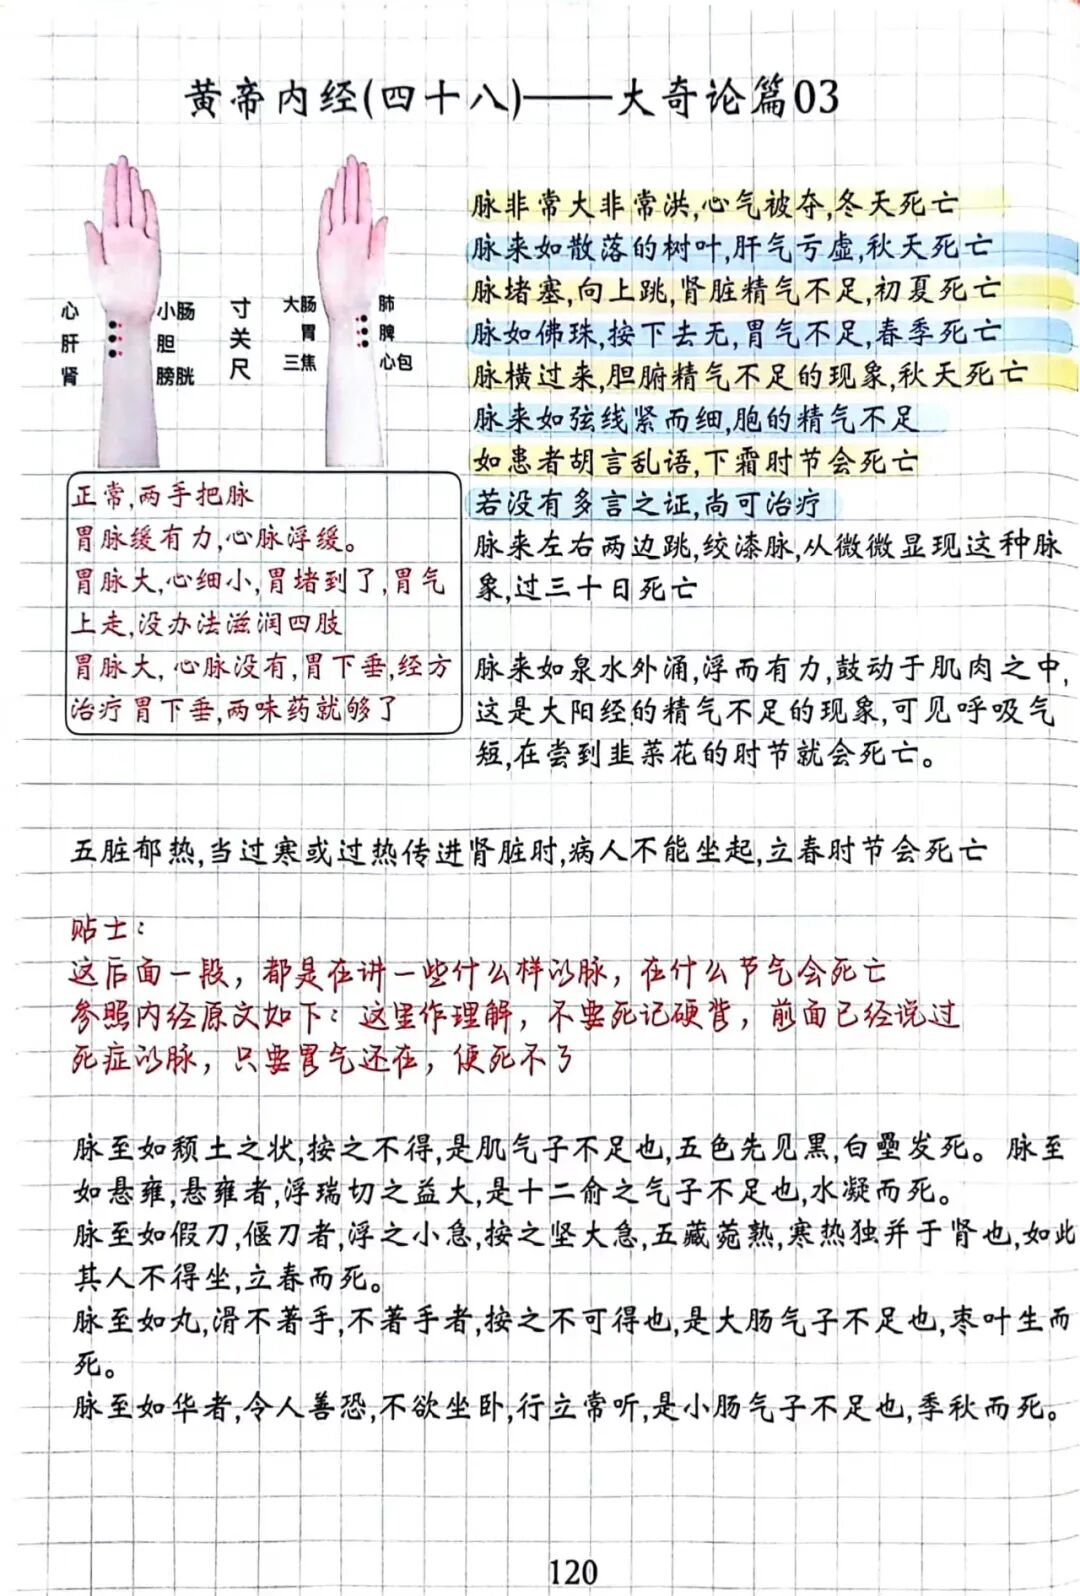 黄帝内经(四十八)——大奇论篇03
心 小肠 寸 大肠 肺
肝 胆 关 胃 脾
肾 膀胱 尺 三焦 心包
正常,两手把脉
胃脉缓有力,心脉浮缓。
胃脉大,心细小,胃堵到了,胃气
上走,没办法滋润四肢
胃脉大,心脉没有,胃下垂,经方
治疗胃下垂,两味药就够了
脉非常大非常洪,心气被夺,冬天死亡
脉来如散落的树叶,肝气亏虚,秋天死亡
脉堵塞,向上跳,肾脏精气不足,初夏死亡
脉如佛珠,按下去无,胃气不足,春季死亡
脉横过来,胆腑精气不足的现象,秋天死亡
脉来如弦线紧而细,胞的精气不足
如患者胡言乱语,下霜时节会死亡
若没有多言之证,尚可治疗
脉来左右两边跳,绞漆脉,从微微显现这种脉
象,过三十日死亡
脉来如泉水外涌,浮而有力,鼓动于肌肉之中,
这是大阳经的精气不足的现象,可见呼吸气
短,在尝到韭菜花的时节就会死亡。
五脏郁热,当过寒或过热传进肾脏时,病人不能坐起,立春时节会死亡
贴士：
这后面一段，都是在讲一些什么样的脉，在什么节气会死亡
参照内经原文如下：这里作理解，不要死记硬背，前面已经说过
死症的脉，只要胃气还在，便死不了
脉至如颓土之状,按之不得,是肌气予不足也,五色先见黑,白壘发死。脉至
如悬雍,悬雍者,浮瑞切之益大,是十二俞之气予不足也,水凝而死。
脉至如假刀,偃刀者,浮之小急,按之坚大急,五藏菀熟,寒热独并于肾也,如此
其人不得坐,立春而死。
脉至如丸,滑不著手,不著手者,按之不可得也,是大肠气予不足也,枣叶生而
死。
脉至如华者,令人善恐,不欲坐卧,行立常听,是小肠气予不足也,季秋而死。
120